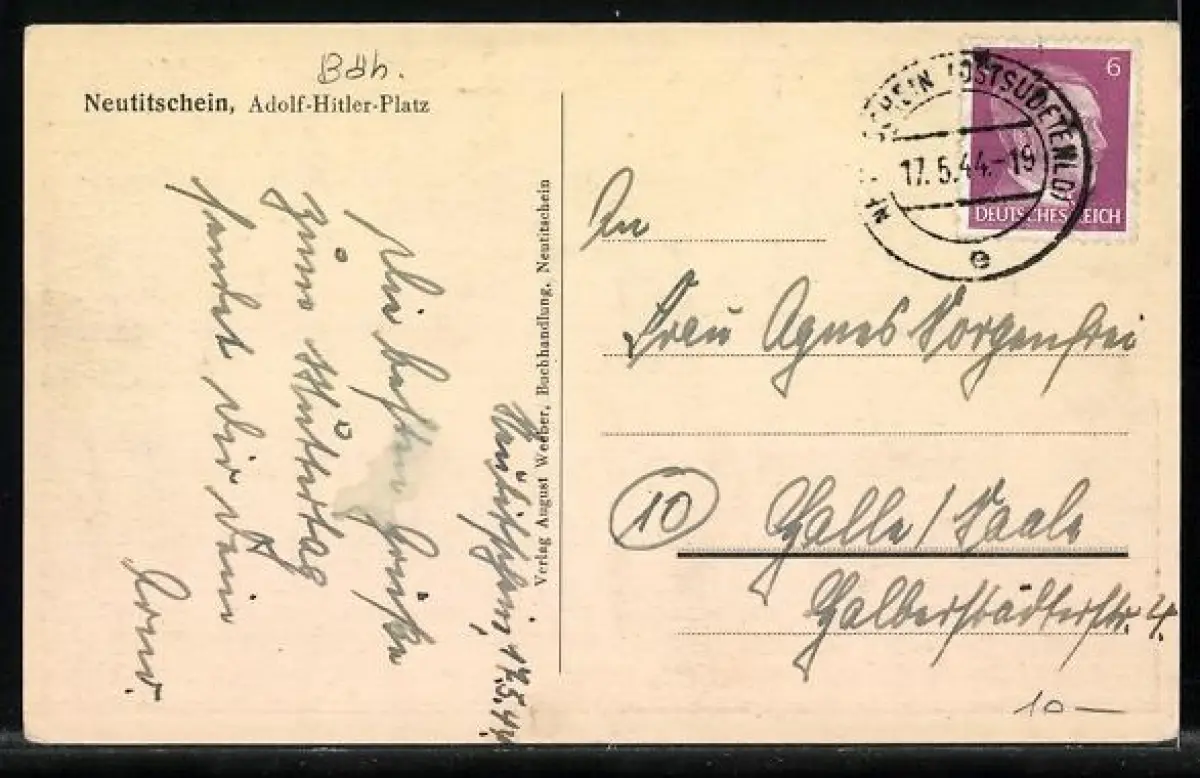 Bdh.
Neutitschein, Adolf-Hitler-Platz
Neutitschein, 17.5.44.
Die besten Grüße
zum Muttertag
sendet Dir Dein
Verlag August Weeber, Buchhandlung, Neutitschein
6
DEUTSCHES REICH
SCHEIN (OSTSUDETENLD)
17.5.44.-19
e
An
Frau Agnes Sorgenfrei
10
Halle/Saale
Halberstädterstr. 4.
10 —